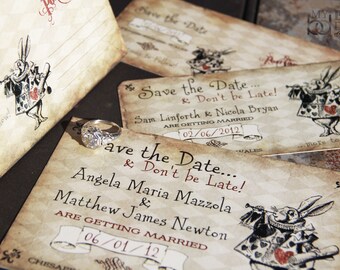 Save the Date
Save the Date...
& Don't be Late!
Sam Lanforth & Nicola Bryan
ARE GETTING MARRIED
02/06/2012
Save the Date...
& Don't be Late!
Angela Maria Mazzola
&
Matthew James Newton
ARE GETTING MARRIED
06/01/12